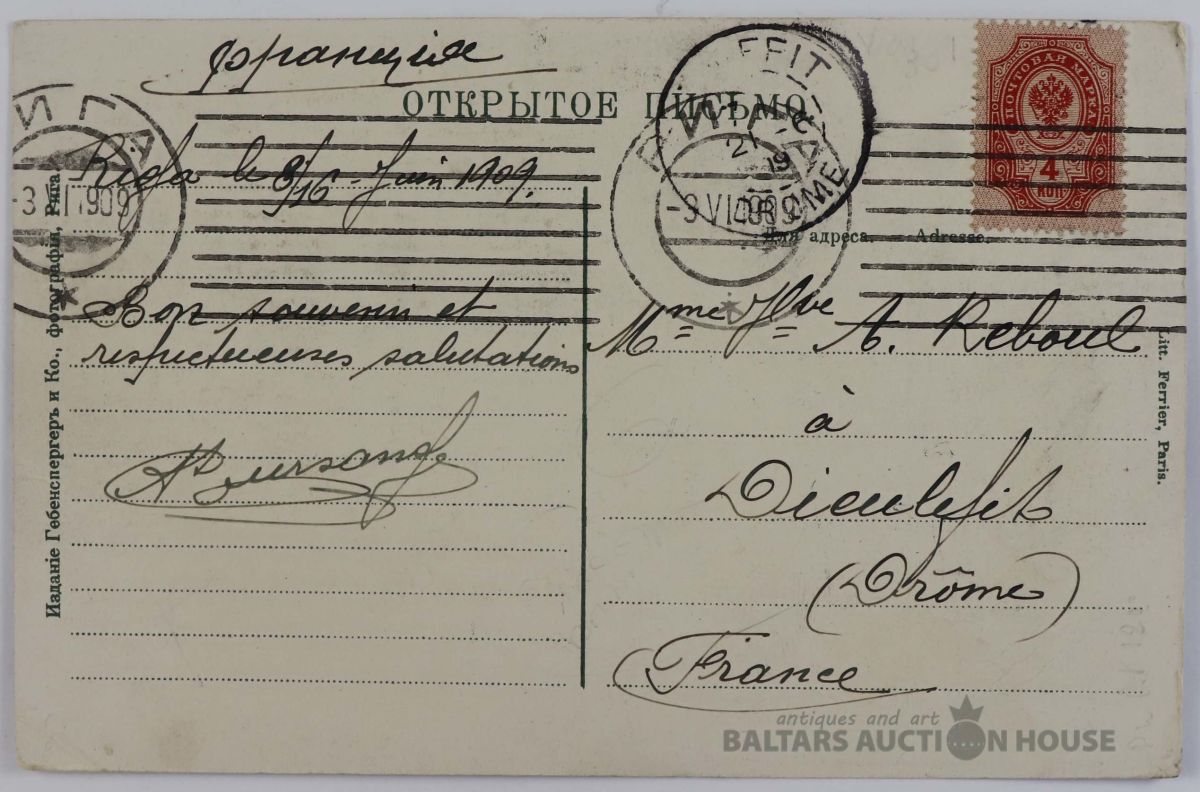 Франція
ОТКРЫТОЕ ПИСЬМО
РИГА
-3 VI 1909
Riga le 3/16 - Juin 1909.
Bon souvenir et
respectueuses salutations
Изданіе Гебенспергеръ и Ко., фотографія, Рига.
РИГА
-3 VI 1909
DROME
ПОЧТОВАЯ МАРКА
4
КОП
Для адреса. Adresse.
Mme Vve A. Reboul
à
Dieulefit
(Drôme)
France
Litt. Ferrier, Paris.
antiques and art
BALTARS AUCTION HOUSE